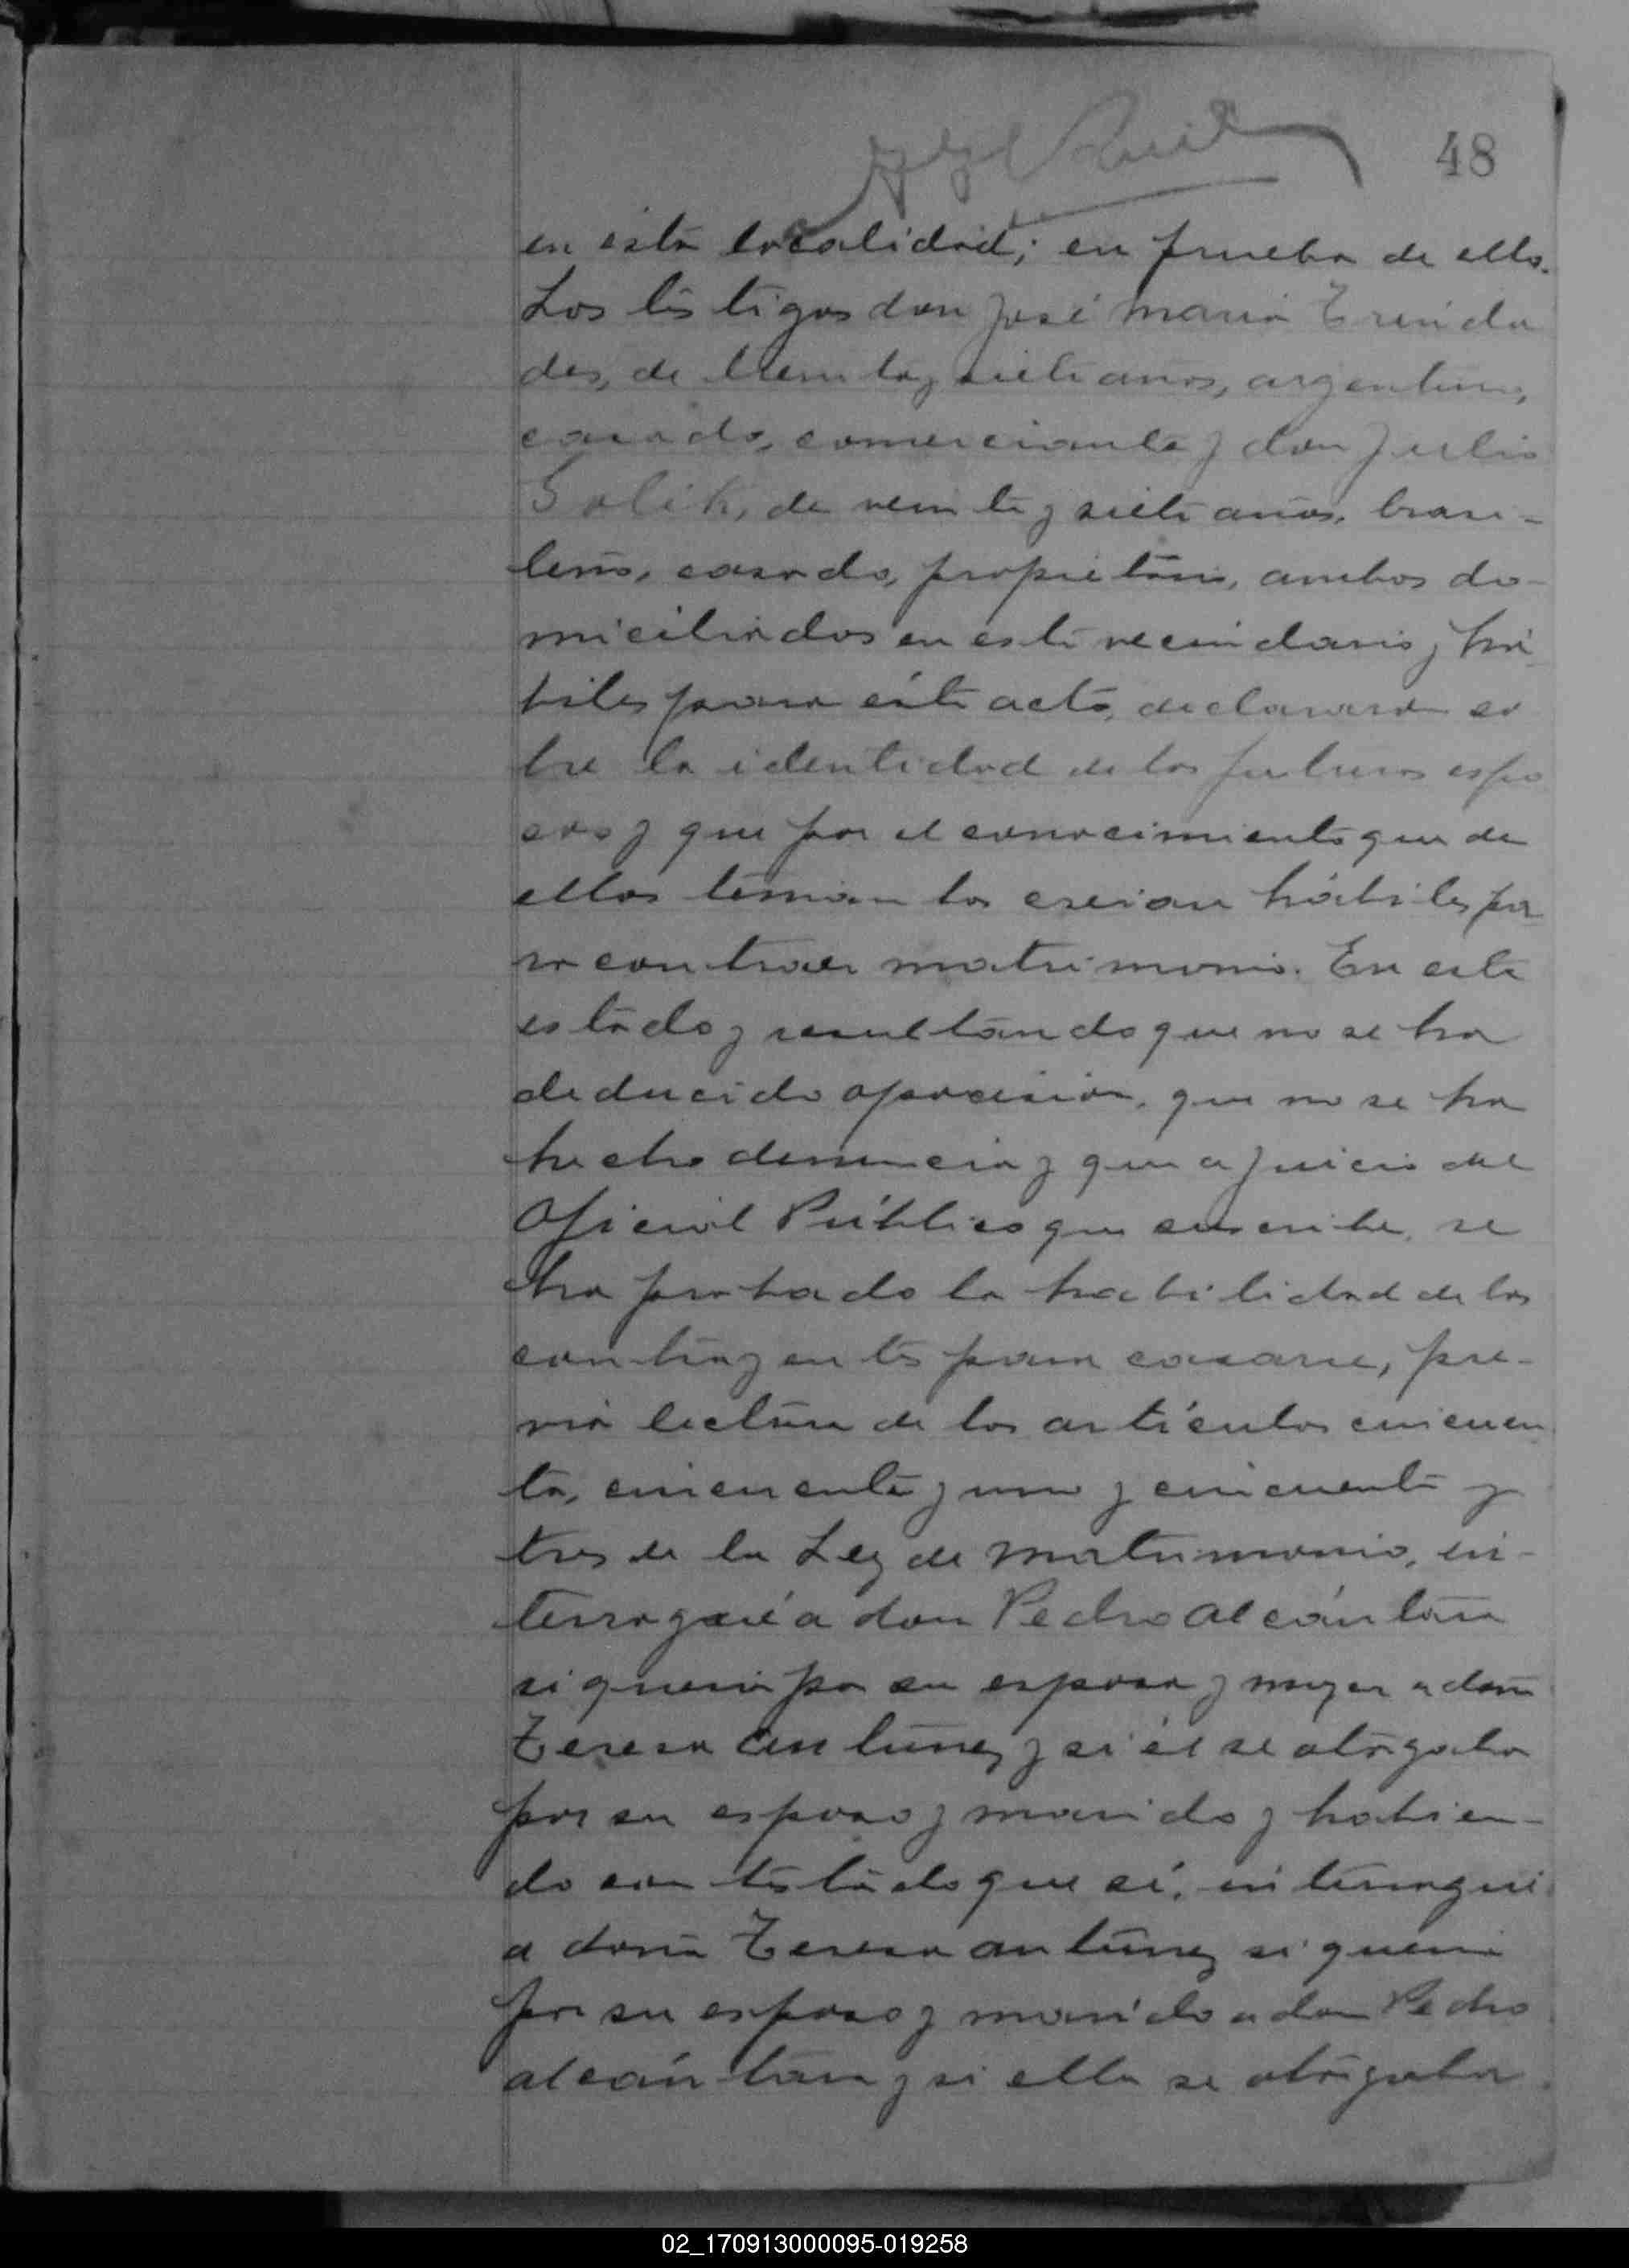 48
en esta localidad; en prueba de ello.
Los testigos don José María Trinda
des, de treinta y siete años, argentino,
casado, comerciante y don Julio
Golik, de veinte y siete años, brasi-
leño, casado, propietario, ambos do-
miciliados en este vecindario y há
biles para este acto, declararon so
bre la identidad de los futuros espo
sos y que por el conocimiento que de
ellos tenían los creían hábiles pa
ra contraer matrimonio. En este
estado y resultando que no se ha
deducido oposición, que no se ha
hecho denuncia y que a juicio del
Oficial Público que suscribe, se
ha probado la habilidad de los
contrayentes para casarse, pre-
via lectura de los artículos cincuen
ta, cincuenta y uno y cincuenta y
tres de la Ley de Matrimonio, in-
terrogué a don Pedro Alcántara
si quería por su esposa y mujer a doña
Teresa Antunez y si él se otorgaba
por su esposo y marido y habien-
do contestado que sí, interrogué
a doña Teresa Antunez si quería
por su esposo y marido a don Pedro
Alcántara y si ella se otorgaba
02_170913000095-019258